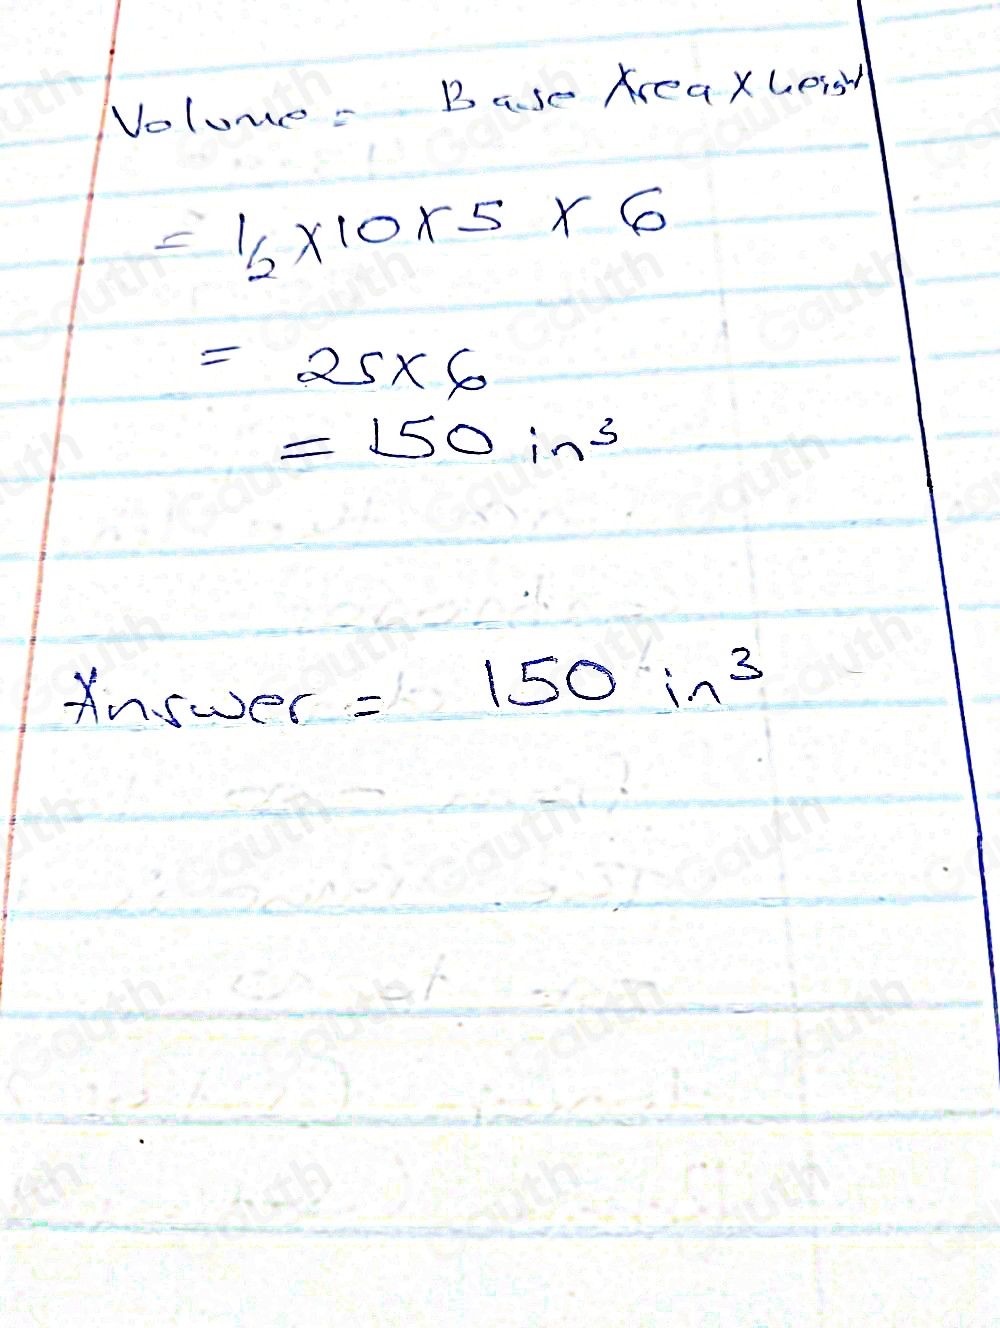 Volume = Base Area × height
= 1/2 × 10 × 5 × 6
= 25 × 6
= 150 in³
Answer = 150 in³